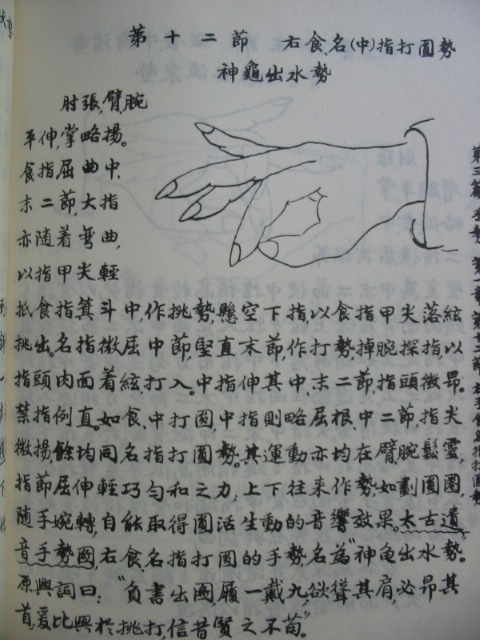 第十二節 右食、名(中)指打圓勢
神龜出水勢
肘張,臂,腕
平伸,掌略揚。
食指屈曲中、
末二節,大指
亦隨着彎曲,
以指甲尖輕
抵食指箕斗中作挑勢,懸空下指以食指甲尖落絃
挑出。名指微屈中節,堅直末節作打勢,掉腕探指以
指頭肉面着絃,打入。中指伸其中、末二節,指頭微昂。
禁指例直。如食、中打圓,中指則略屈根、中二節,指尖
微揚,餘均同名指打圓勢。其運動亦均在臂,腕鬆靈,
指節屈伸輕巧勻和之力,上下往來作勢,如劃圓圈,
隨手婉轉,自能取得圓活生動的音響效果。太古遺
音手勢圖,右食、名指打圓的手勢,名為"神龜出水勢"。
原興詞曰:"負書出圖,履一戴九,欲聳其肩,必昂其
首,爰比興於挑打,信昔賢之不苟。"